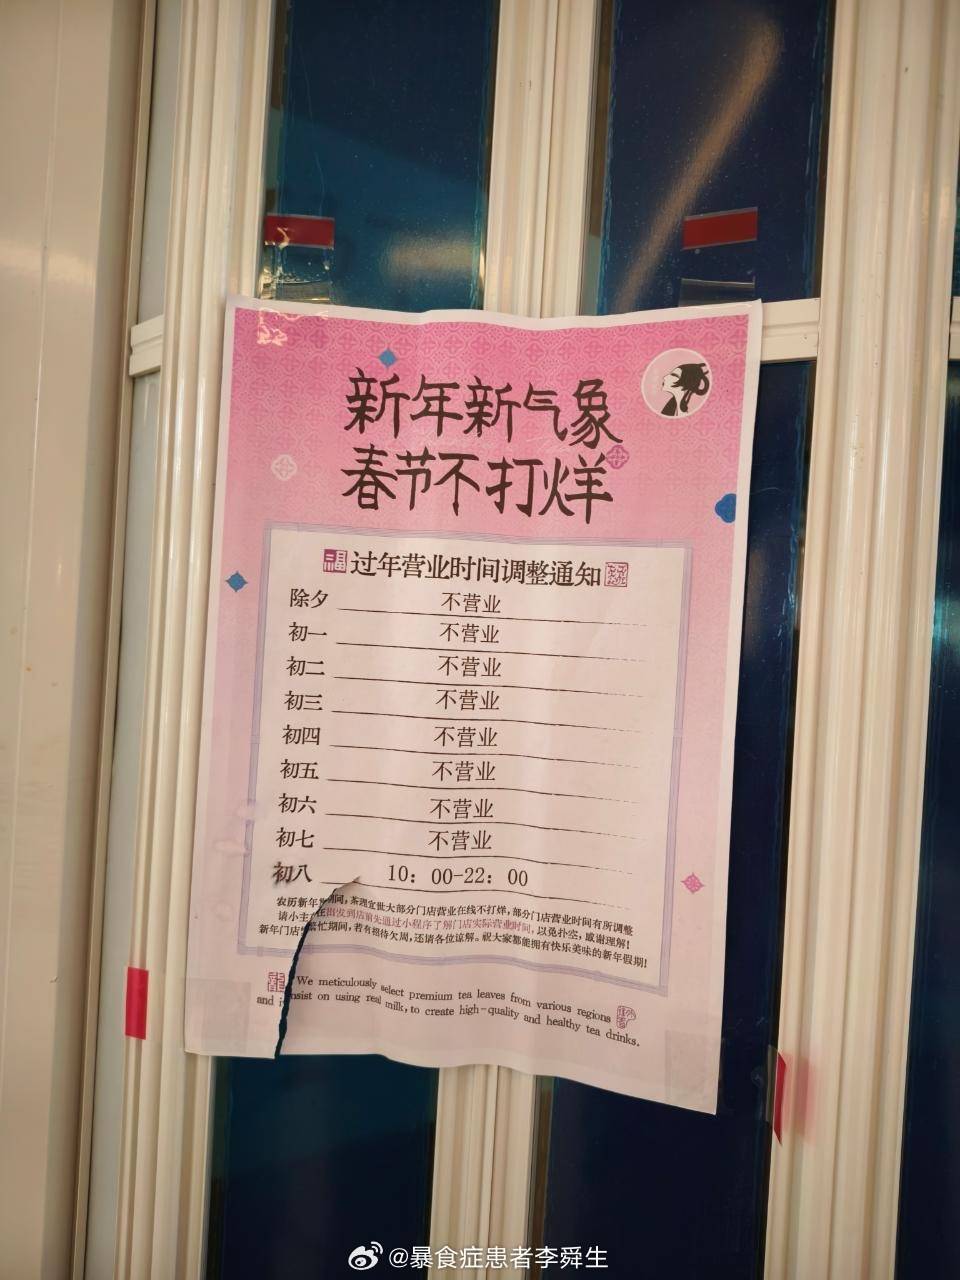 新年新气象
春节不打烊
福 过年营业时间调整通知
除夕 不营业
初一 不营业
初二 不营业
初三 不营业
初四 不营业
初五 不营业
初六 不营业
初七 不营业
初八 10：00-22：00
农历新年期间，茶理宜世大部分门店营业在线不打烊，部分门店营业时间有所调整
请小主在出发到店前先通过小程序了解门店实际营业时间，以免扑空，感谢理解！
新年门店繁忙期间，若有招待欠周，还请各位谅解。祝大家都能拥有快乐美味的新年假期！
We meticulously select premium tea leaves from various regions
and insist on using real milk, to create high-quality and healthy tea drinks.
@暴食症患者李舜生